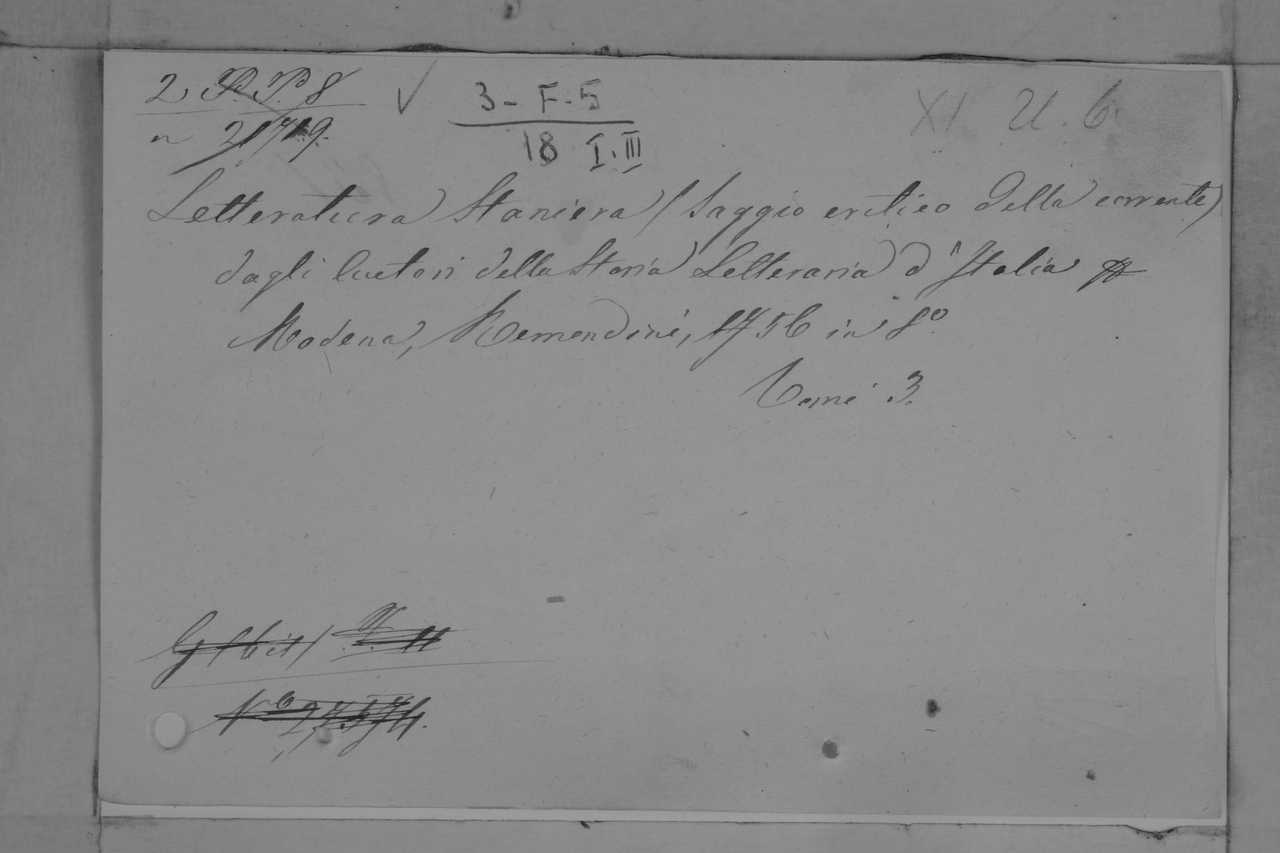 2 P. P. 8 ✓ 3-F-5 XI U. 6.
n 21719. 18 I.III
Letteratura Staniera (Saggio critico della corrente)
dagli Autori della Storia Letteraria d'Italia
Modena, Remondini, 1756 in 8º
Tomi 3.
Nº